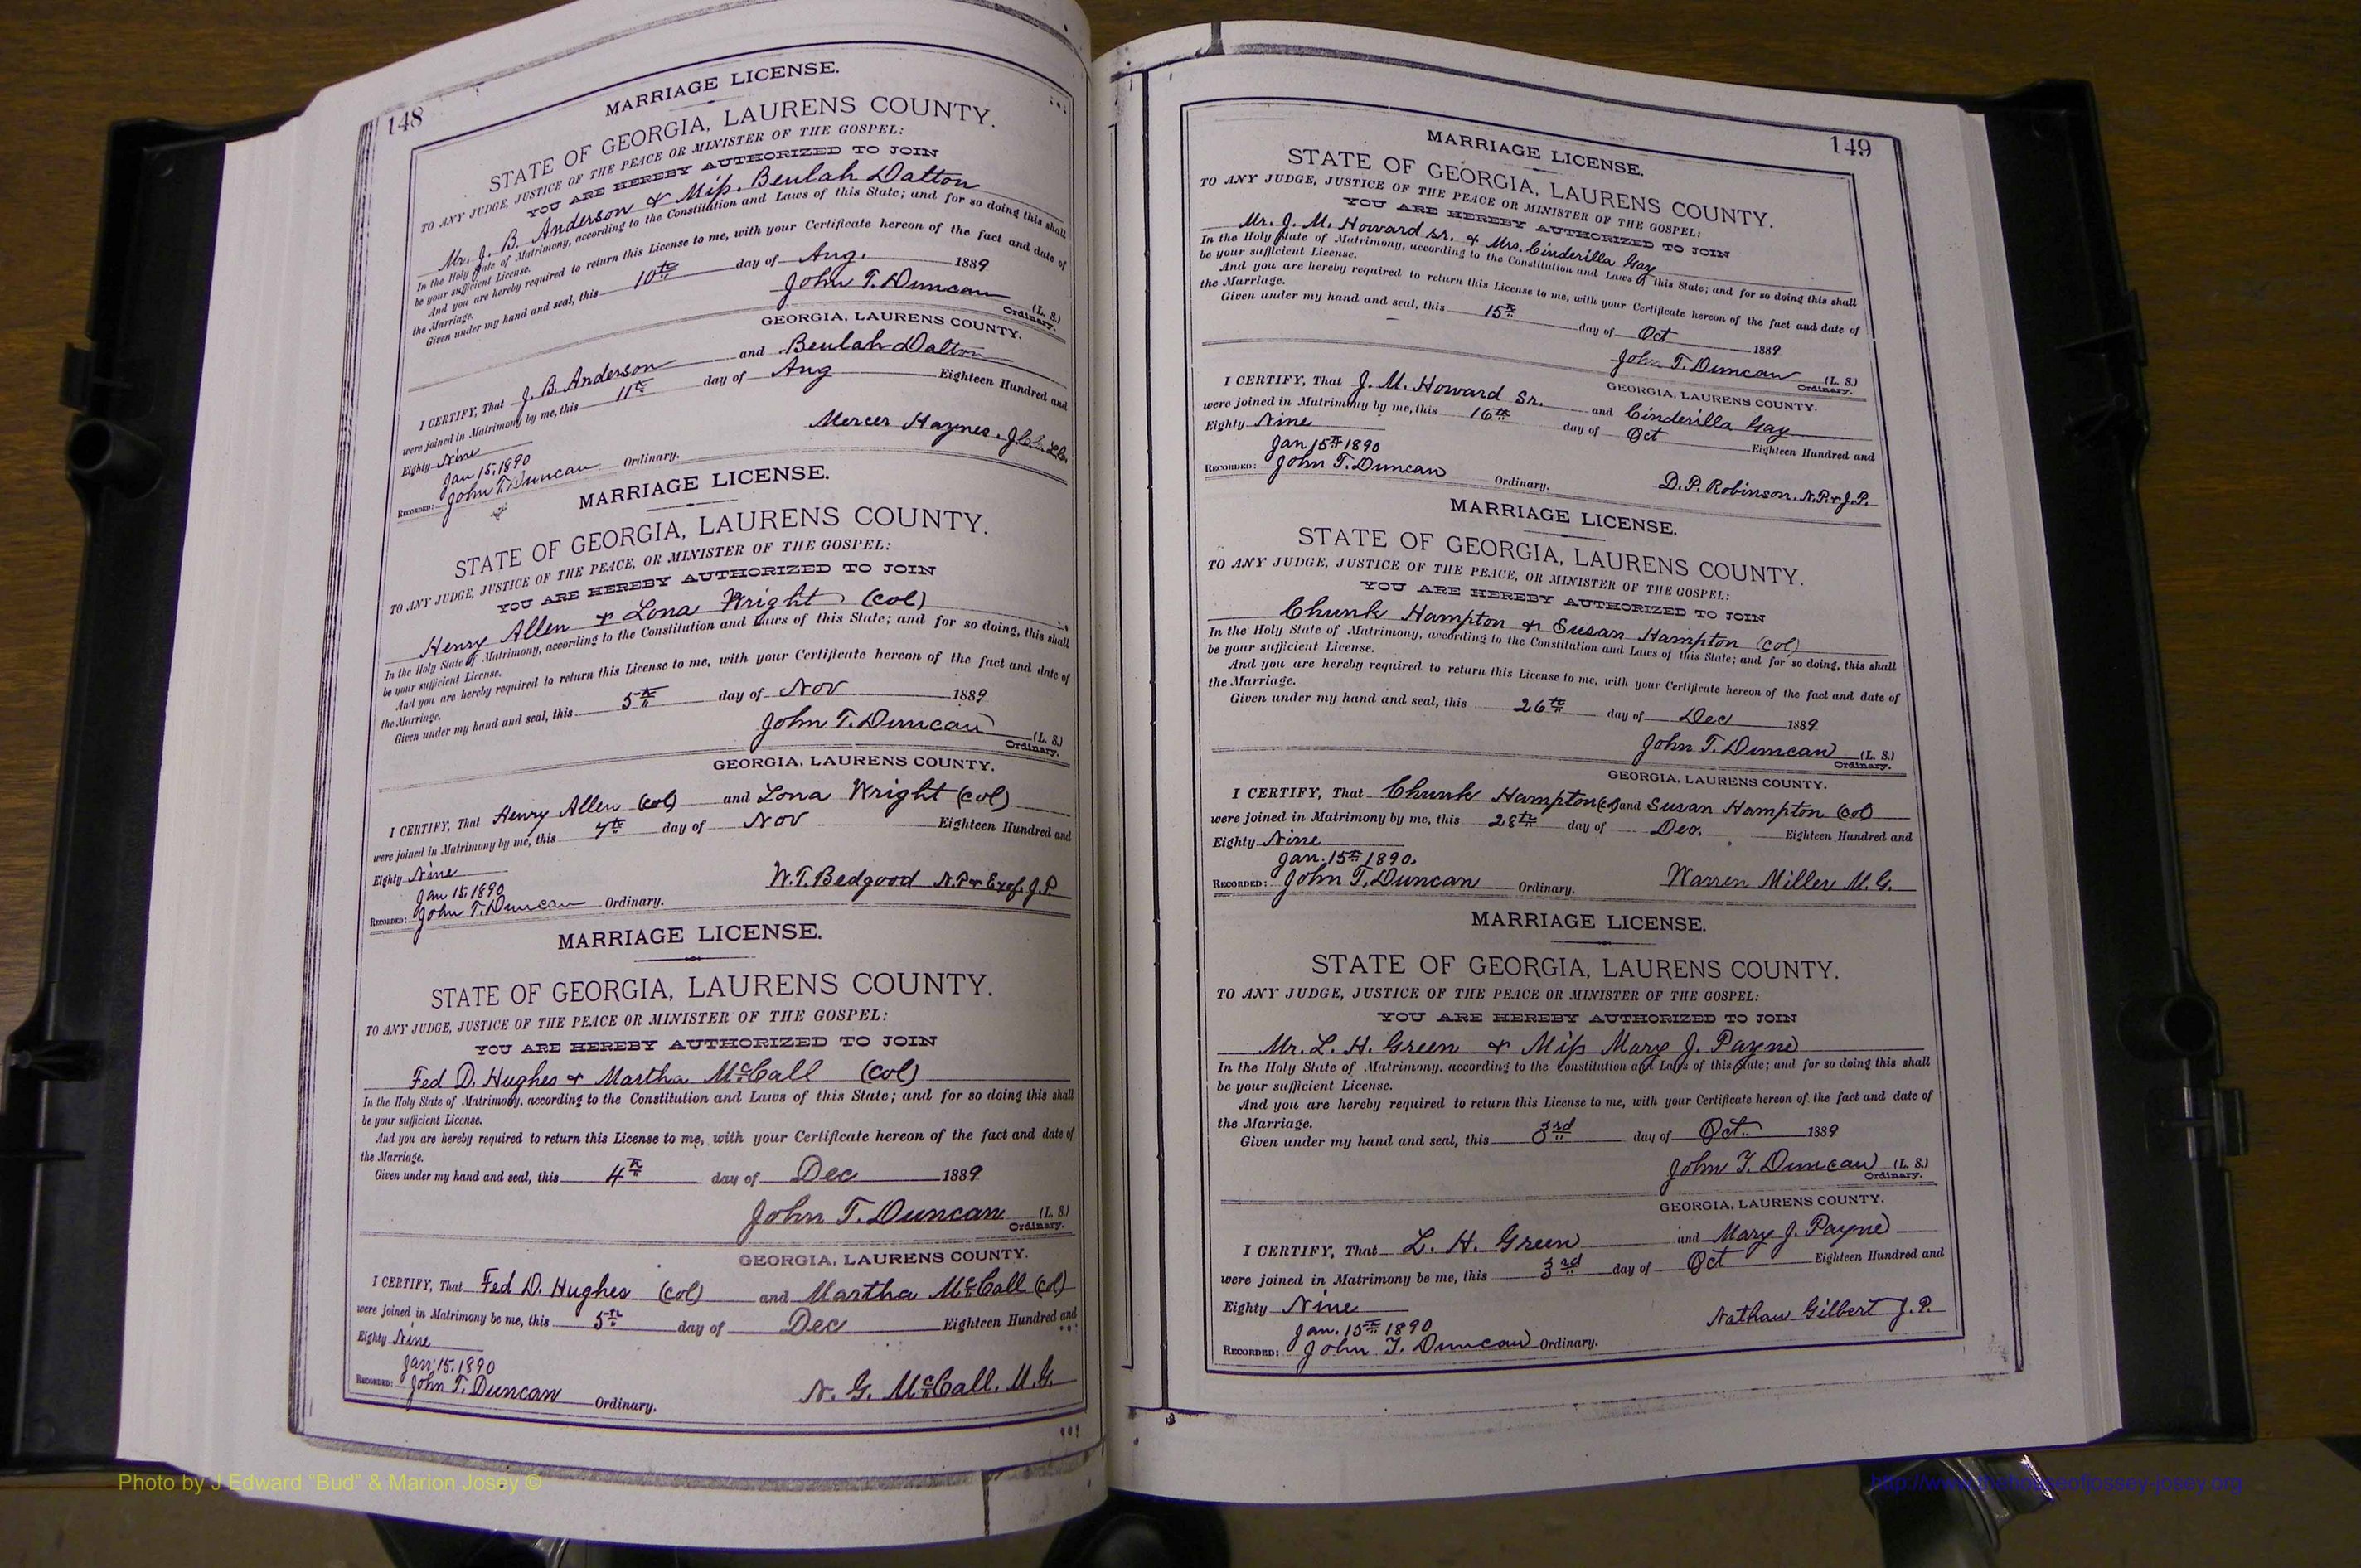 148
MARRIAGE LICENSE.
STATE OF GEORGIA, LAURENS COUNTY.
TO ANY JUDGE, JUSTICE OF THE PEACE OR MINISTER OF THE GOSPEL:
YOU ARE HEREBY AUTHORIZED TO JOIN
Mr. J. B. Anderson & Miss. Beulah Dalton
In the Holy State of Matrimony, according to the Constitution and Laws of this State; and for so doing this shall
be your sufficient License.
And you are hereby required to return this License to me, with your Certificate hereon of the fact and date of
the Marriage.
Given under my hand and seal, this 10th day of Aug. 1889
John T. Duncan (L. S.)
Ordinary.
GEORGIA, LAURENS COUNTY.
I CERTIFY, That J. B. Anderson and Beulah Dalton
were joined in Matrimony by me, this 11th day of Aug Eighteen Hundred and
Eighty Nine
Mercer Haynes.
Jan 15, 1890
RECORDED: John T. Duncan Ordinary.
MARRIAGE LICENSE.
STATE OF GEORGIA, LAURENS COUNTY.
TO ANY JUDGE, JUSTICE OF THE PEACE, OR MINISTER OF THE GOSPEL:
YOU ARE HEREBY AUTHORIZED TO JOIN
Henry Allen & Lona Wright (col)
In the Holy State of Matrimony, according to the Constitution and Laws of this State; and for so doing, this shall
be your sufficient License.
And you are hereby required to return this License to me, with your Certificate hereon of the fact and date of
the Marriage.
Given under my hand and seal, this 5th day of Nov 1889
John T. Duncan (L. S.)
Ordinary.
GEORGIA, LAURENS COUNTY.
I CERTIFY, That Henry Allen (col) and Lona Wright (col)
were joined in Matrimony by me, this 7th day of Nov Eighteen Hundred and
Eighty Nine
W. T. Bedgood N.P & Exof. J.P
Jan 15, 1890
RECORDED: John T. Duncan Ordinary.
MARRIAGE LICENSE.
STATE OF GEORGIA, LAURENS COUNTY.
TO ANY JUDGE, JUSTICE OF THE PEACE OR MINISTER OF THE GOSPEL:
YOU ARE HEREBY AUTHORIZED TO JOIN
Fed D. Hughes & Martha McCall (col)
In the Holy State of Matrimony, according to the Constitution and Laws of this State; and for so doing this shall
be your sufficient License.
And you are hereby required to return this License to me, with your Certificate hereon of the fact and date of
the Marriage.
Given under my hand and seal, this 4th day of Dec 1889
John T. Duncan (L. S.)
Ordinary.
GEORGIA, LAURENS COUNTY.
I CERTIFY, That Fed D. Hughes (col) and Martha McCall (col)
were joined in Matrimony be me, this 5th day of Dec Eighteen Hundred and
Eighty Nine
Jan, 15, 1890
RECORDED: John T. Duncan Ordinary.
N. G. McCall. M.G.
149
MARRIAGE LICENSE.
STATE OF GEORGIA, LAURENS COUNTY.
TO ANY JUDGE, JUSTICE OF THE PEACE OR MINISTER OF THE GOSPEL:
YOU ARE HEREBY AUTHORIZED TO JOIN
Mr. J. M. Howard Sr. & Mrs. Cinderilla Gay
In the Holy State of Matrimony, according to the Constitution and Laws of this State; and for so doing this shall
be your sufficient License.
And you are hereby required to return this License to me, with your Certificate hereon of the fact and date of
the Marriage.
Given under my hand and seal, this 15th day of Oct 1889
John T. Duncan (L. S.)
Ordinary.
GEORGIA, LAURENS COUNTY.
I CERTIFY, That J. M. Howard Sr. and Cinderilla Gay
were joined in Matrimony by me, this 16th day of Oct Eighteen Hundred and
Eighty Nine
Jan 15th 1890
RECORDED: John T. Duncan Ordinary.
D. P. Robinson, N.P. & J.P.
MARRIAGE LICENSE.
STATE OF GEORGIA, LAURENS COUNTY.
TO ANY JUDGE, JUSTICE OF THE PEACE, OR MINISTER OF THE GOSPEL:
YOU ARE HEREBY AUTHORIZED TO JOIN
Chunk Hampton & Susan Hampton (col)
In the Holy State of Matrimony, according to the Constitution and Laws of this State; and for so doing, this shall
be your sufficient License.
And you are hereby required to return this License to me, with your Certificate hereon of the fact and date of
the Marriage.
Given under my hand and seal, this 26th day of Dec 1889
John T. Duncan (L. S.)
Ordinary.
GEORGIA, LAURENS COUNTY.
I CERTIFY, That Chunk Hampton (col) and Susan Hampton (col)
were joined in Matrimony by me, this 28th day of Dec. Eighteen Hundred and
Eighty Nine
Jan. 15th 1890.
RECORDED: John T. Duncan Ordinary.
Warren Miller M.G.
MARRIAGE LICENSE.
STATE OF GEORGIA, LAURENS COUNTY.
TO ANY JUDGE, JUSTICE OF THE PEACE OR MINISTER OF THE GOSPEL:
YOU ARE HEREBY AUTHORIZED TO JOIN
Mr. L. H. Green & Miss Mary J. Payne
In the Holy State of Matrimony, according to the Constitution and Laws of this State; and for so doing this shall
be your sufficient License.
And you are hereby required to return this License to me, with your Certificate hereon of the fact and date of
the Marriage.
Given under my hand and seal, this 3rd day of Oct. 1889
John T. Duncan (L. S.)
Ordinary.
GEORGIA, LAURENS COUNTY.
I CERTIFY, That L. H. Green and Mary J. Payne
were joined in Matrimony be me, this 3rd day of Oct Eighteen Hundred and
Eighty Nine
Nathan Gilbert J.P.
Jan. 15th 1890
RECORDED: John T. Duncan Ordinary.
Photo by J Edward "Bud" & Marion Josey ©
http://www.thehouseofjossey-josey.org